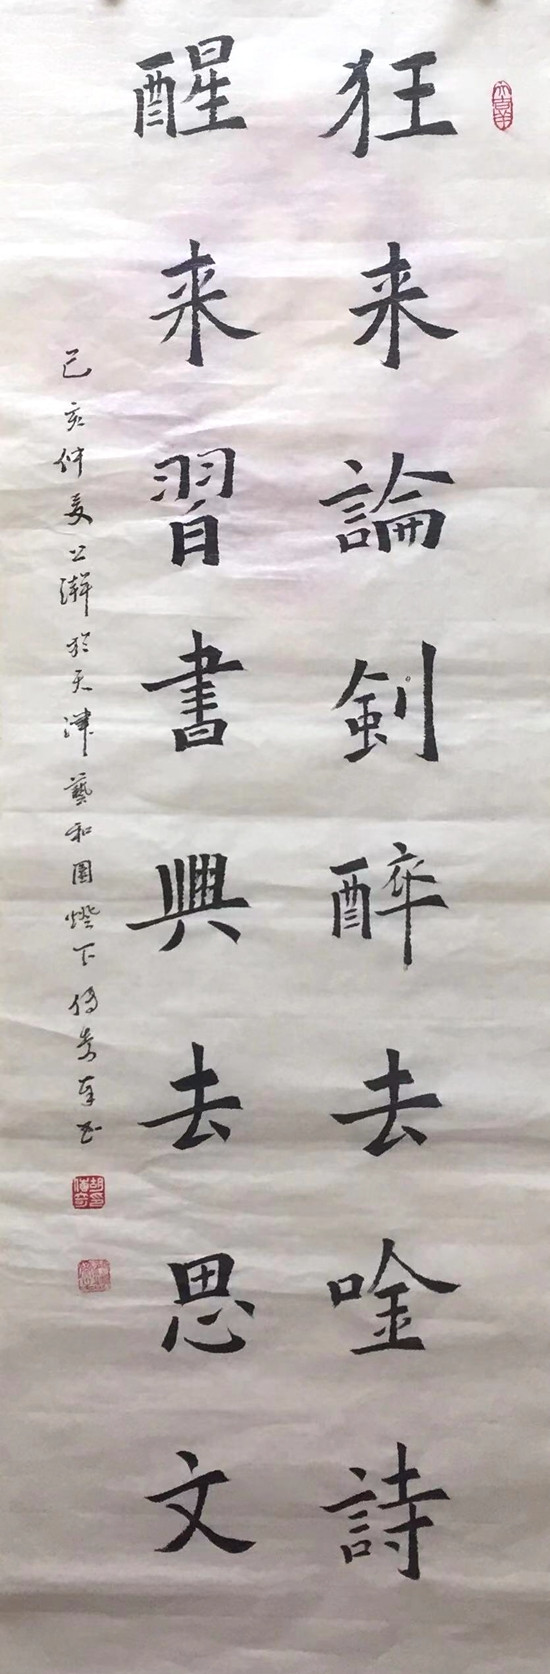 狂来論剣醉去唫詩
醒来習書興去思文
己亥仲夏 於天津藝和園燈下傳奇